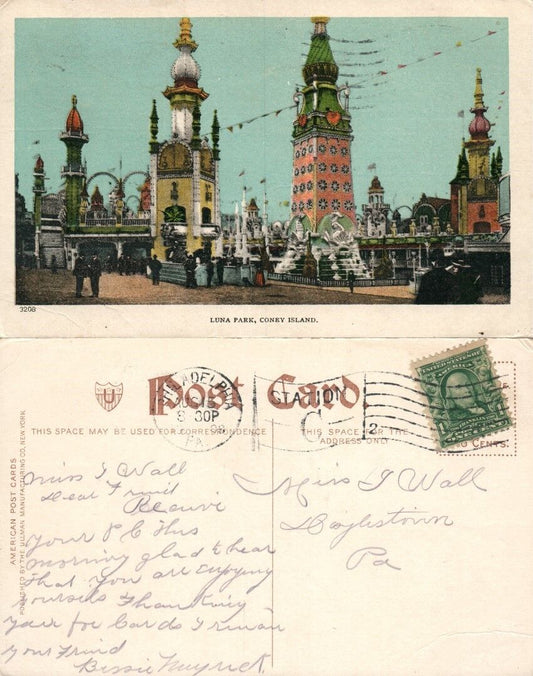 3208
LUNA PARK, CONEY ISLAND.
Post Card
THIS SPACE MAY BE USED FOR CORRESPONDENCE
THIS SPACE IS FOR THE
ADDRESS ONLY
AMERICAN POST CARDS
PUBLISHED BY THE ULLMAN MANUFACTURING CO. NEW YORK
PHILADELPHIA
8 30P
PA.
STATION
C
2
UNITED STATES
1
CENTS.
Miss I Wall
Dear Friend
Receive
Your P C this
morning glad t hear
that you are enjoying
yourselfs Thanking
you for Cards I remain
your Friend
Bessie
Miss I Wall
Doylestown
Pa